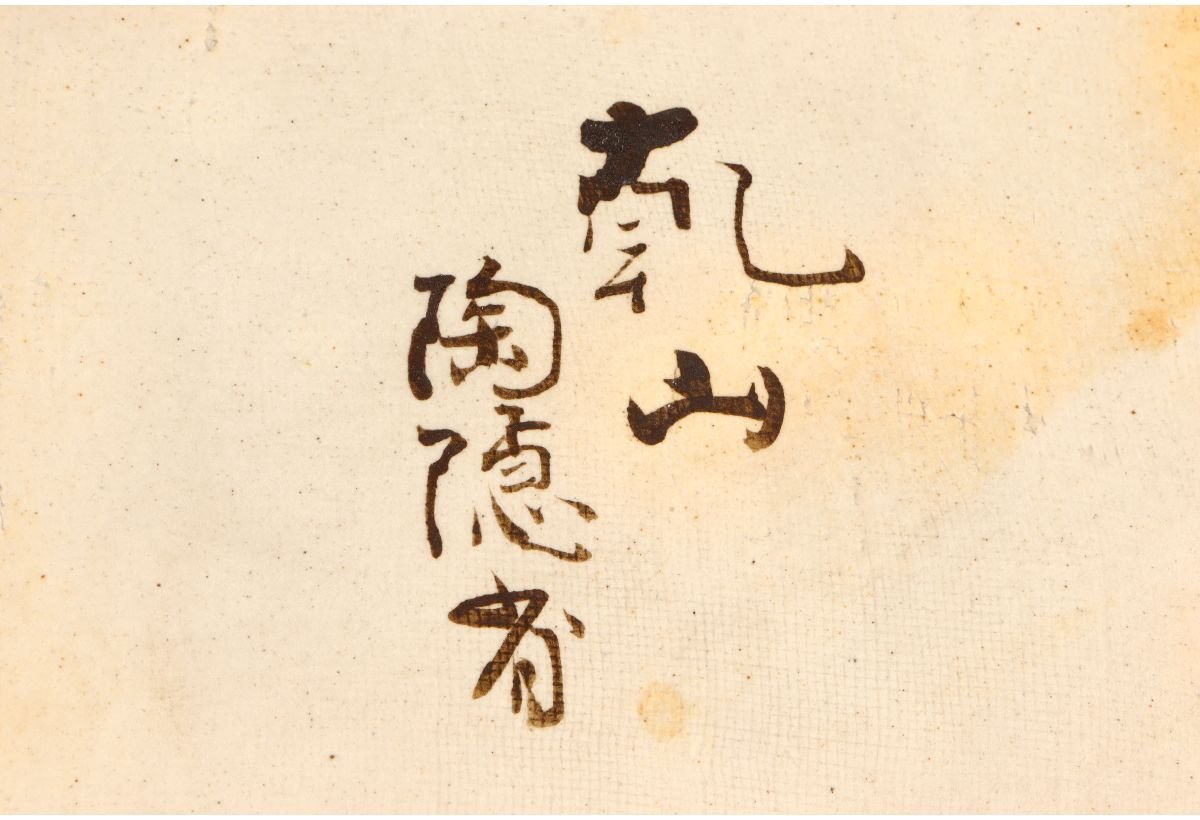 乾山
陶隠者